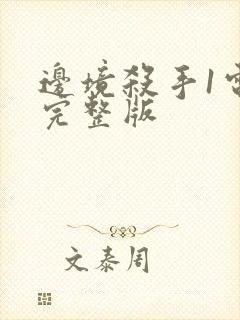 邊境殺手1電
完整版
文泰周